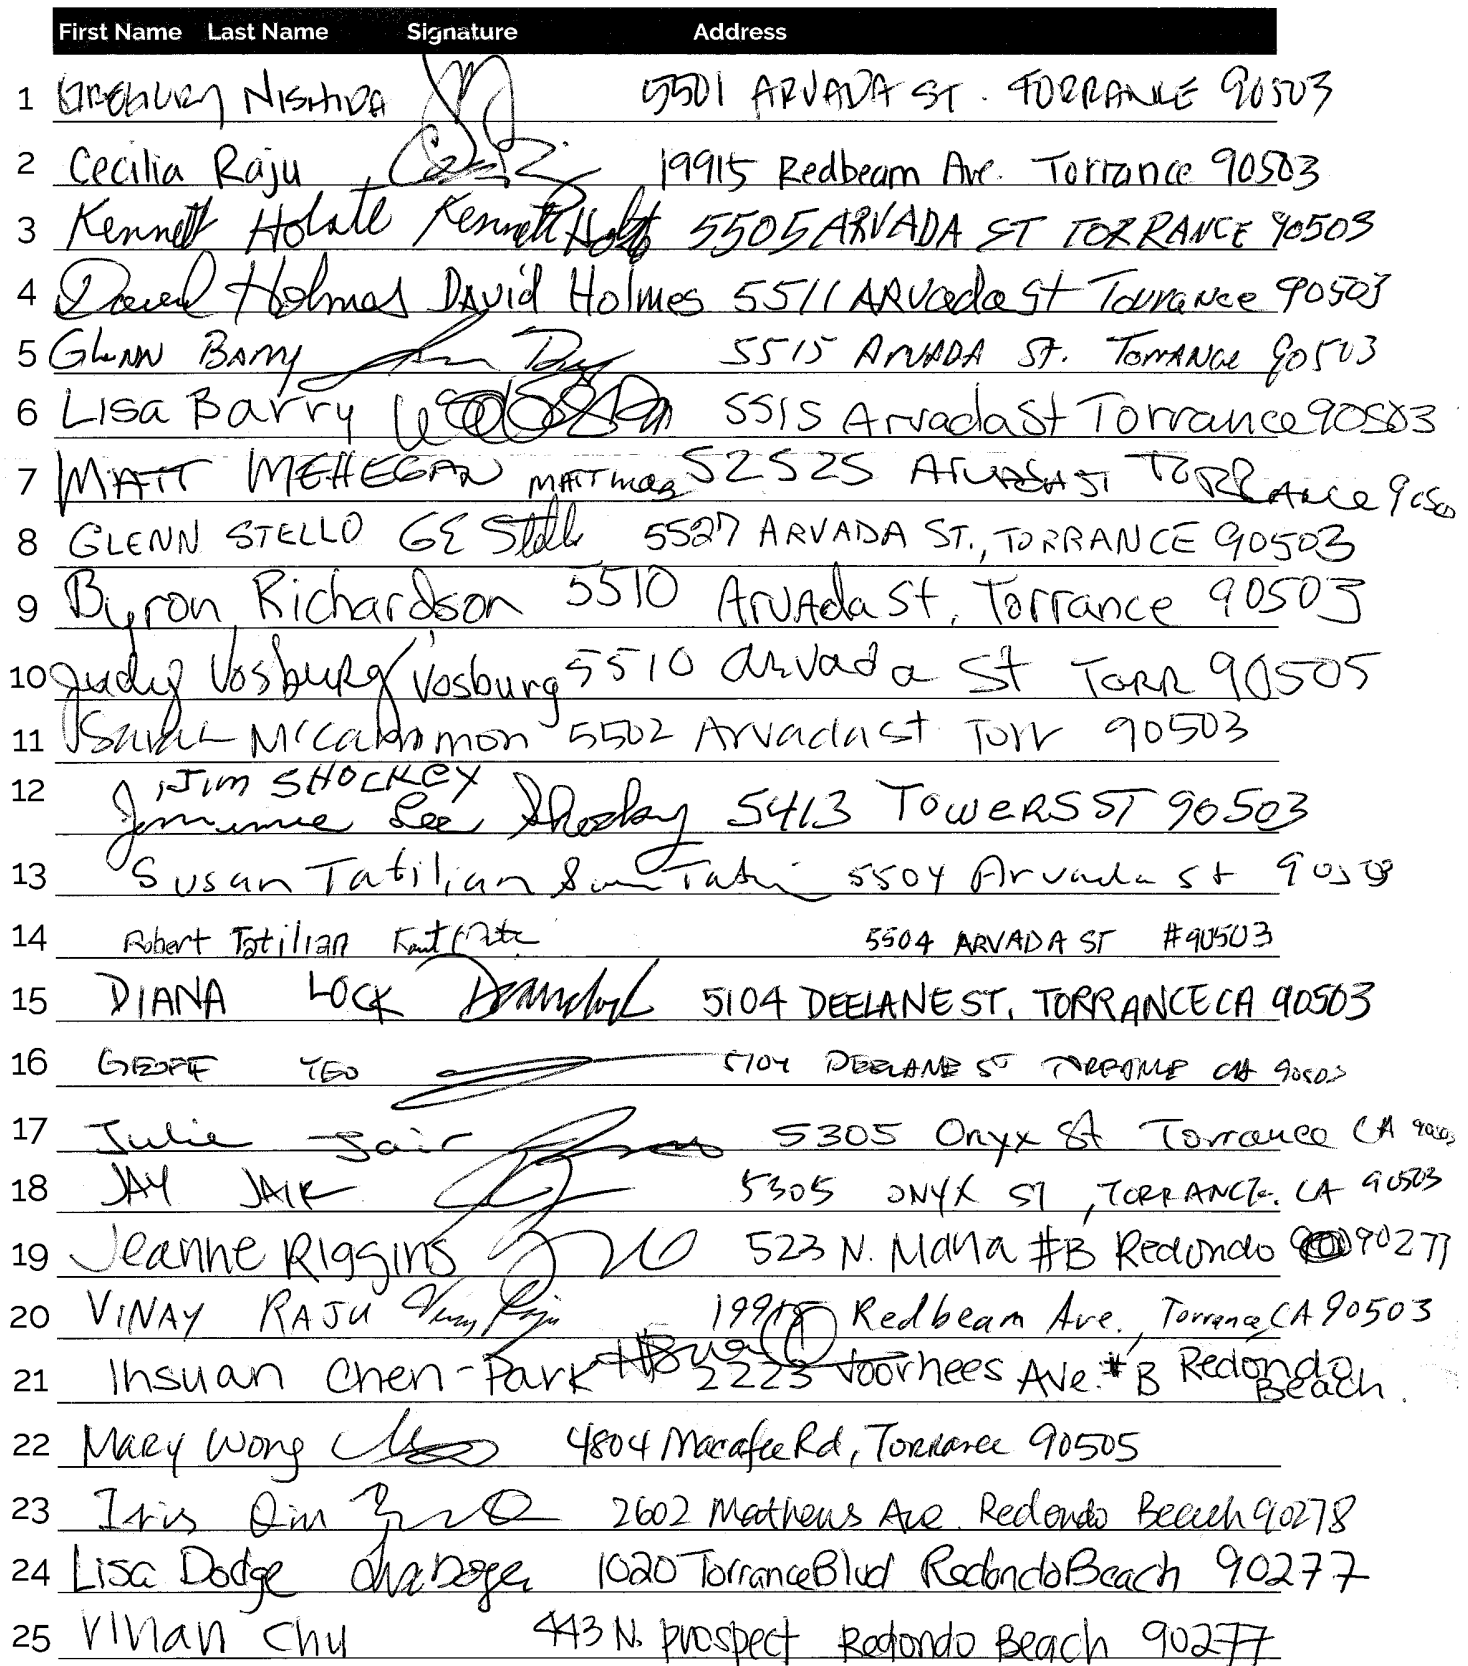 First Name Last Name Signature Address
1 GREGORY NISHIDA 5501 ARVADA ST. TORRANCE 90503
2 Cecilia Raju 19915 Redbeam Ave. Torrance 90503
3 Kenneth Kenneth 5505 ARVADA ST TORRANCE 90503
4 David Holmes David Holmes 5511 ARVada St Torrance 90503
5 Glenn Barry 5515 ARVADA St. Torrance 90503
6 Lisa Barry 5515 Arvada St Torrance 90503
7 MATT MEHEGAN MATT 52525 Arvada ST TORRance
8 GLENN STELLO GE Stello 5527 ARVADA ST., TORRANCE 90503
9 Byron Richardson 5510 Arvada St, Torrance 90503
10 Judy Vosburg Vosburg 5510 arvada St Torr 90505
11 Sarah McCammon 5502 Arvada st Torr 90503
12 Jim SHOCKEY
Lee Shockey 5413 TowERS ST 90503
13 Susan Tatilian 5504 Arvada st 90503
14 Robert Tatilian 5504 ARVADA ST #90503
15 DIANA LOCK 5104 DEELANE ST. TORRANCE CA 90503
16 GEOFF YEO 5104 DEELANE ST TORRANCE CA 90503
17 Julie Jair 5305 Onyx St Torrance CA 90503
18 JAY JAIR 5305 ONYX ST, TORRANCE. CA 90503
19 Jeanne Riggins 523 N. Maria #B Redondo 90277
20 VINAY RAJU Vinay Raju 19915 Redbeam Ave., Torrance, CA 90503
21 Ihsuan Chen-Park 2223 Voorhees Ave. #B Redondo Beach.
22 Mary Wong 4804 Macafee Rd, Torrance 90505
23 Iris Qin 2602 Mathews Ave. Redondo Beach 90278
24 Lisa Dodge Lisa Dodge 1020 Torrance Blvd Redondo Beach 90277
25 Vivian Chu 443 N. prospect Redondo Beach 90277